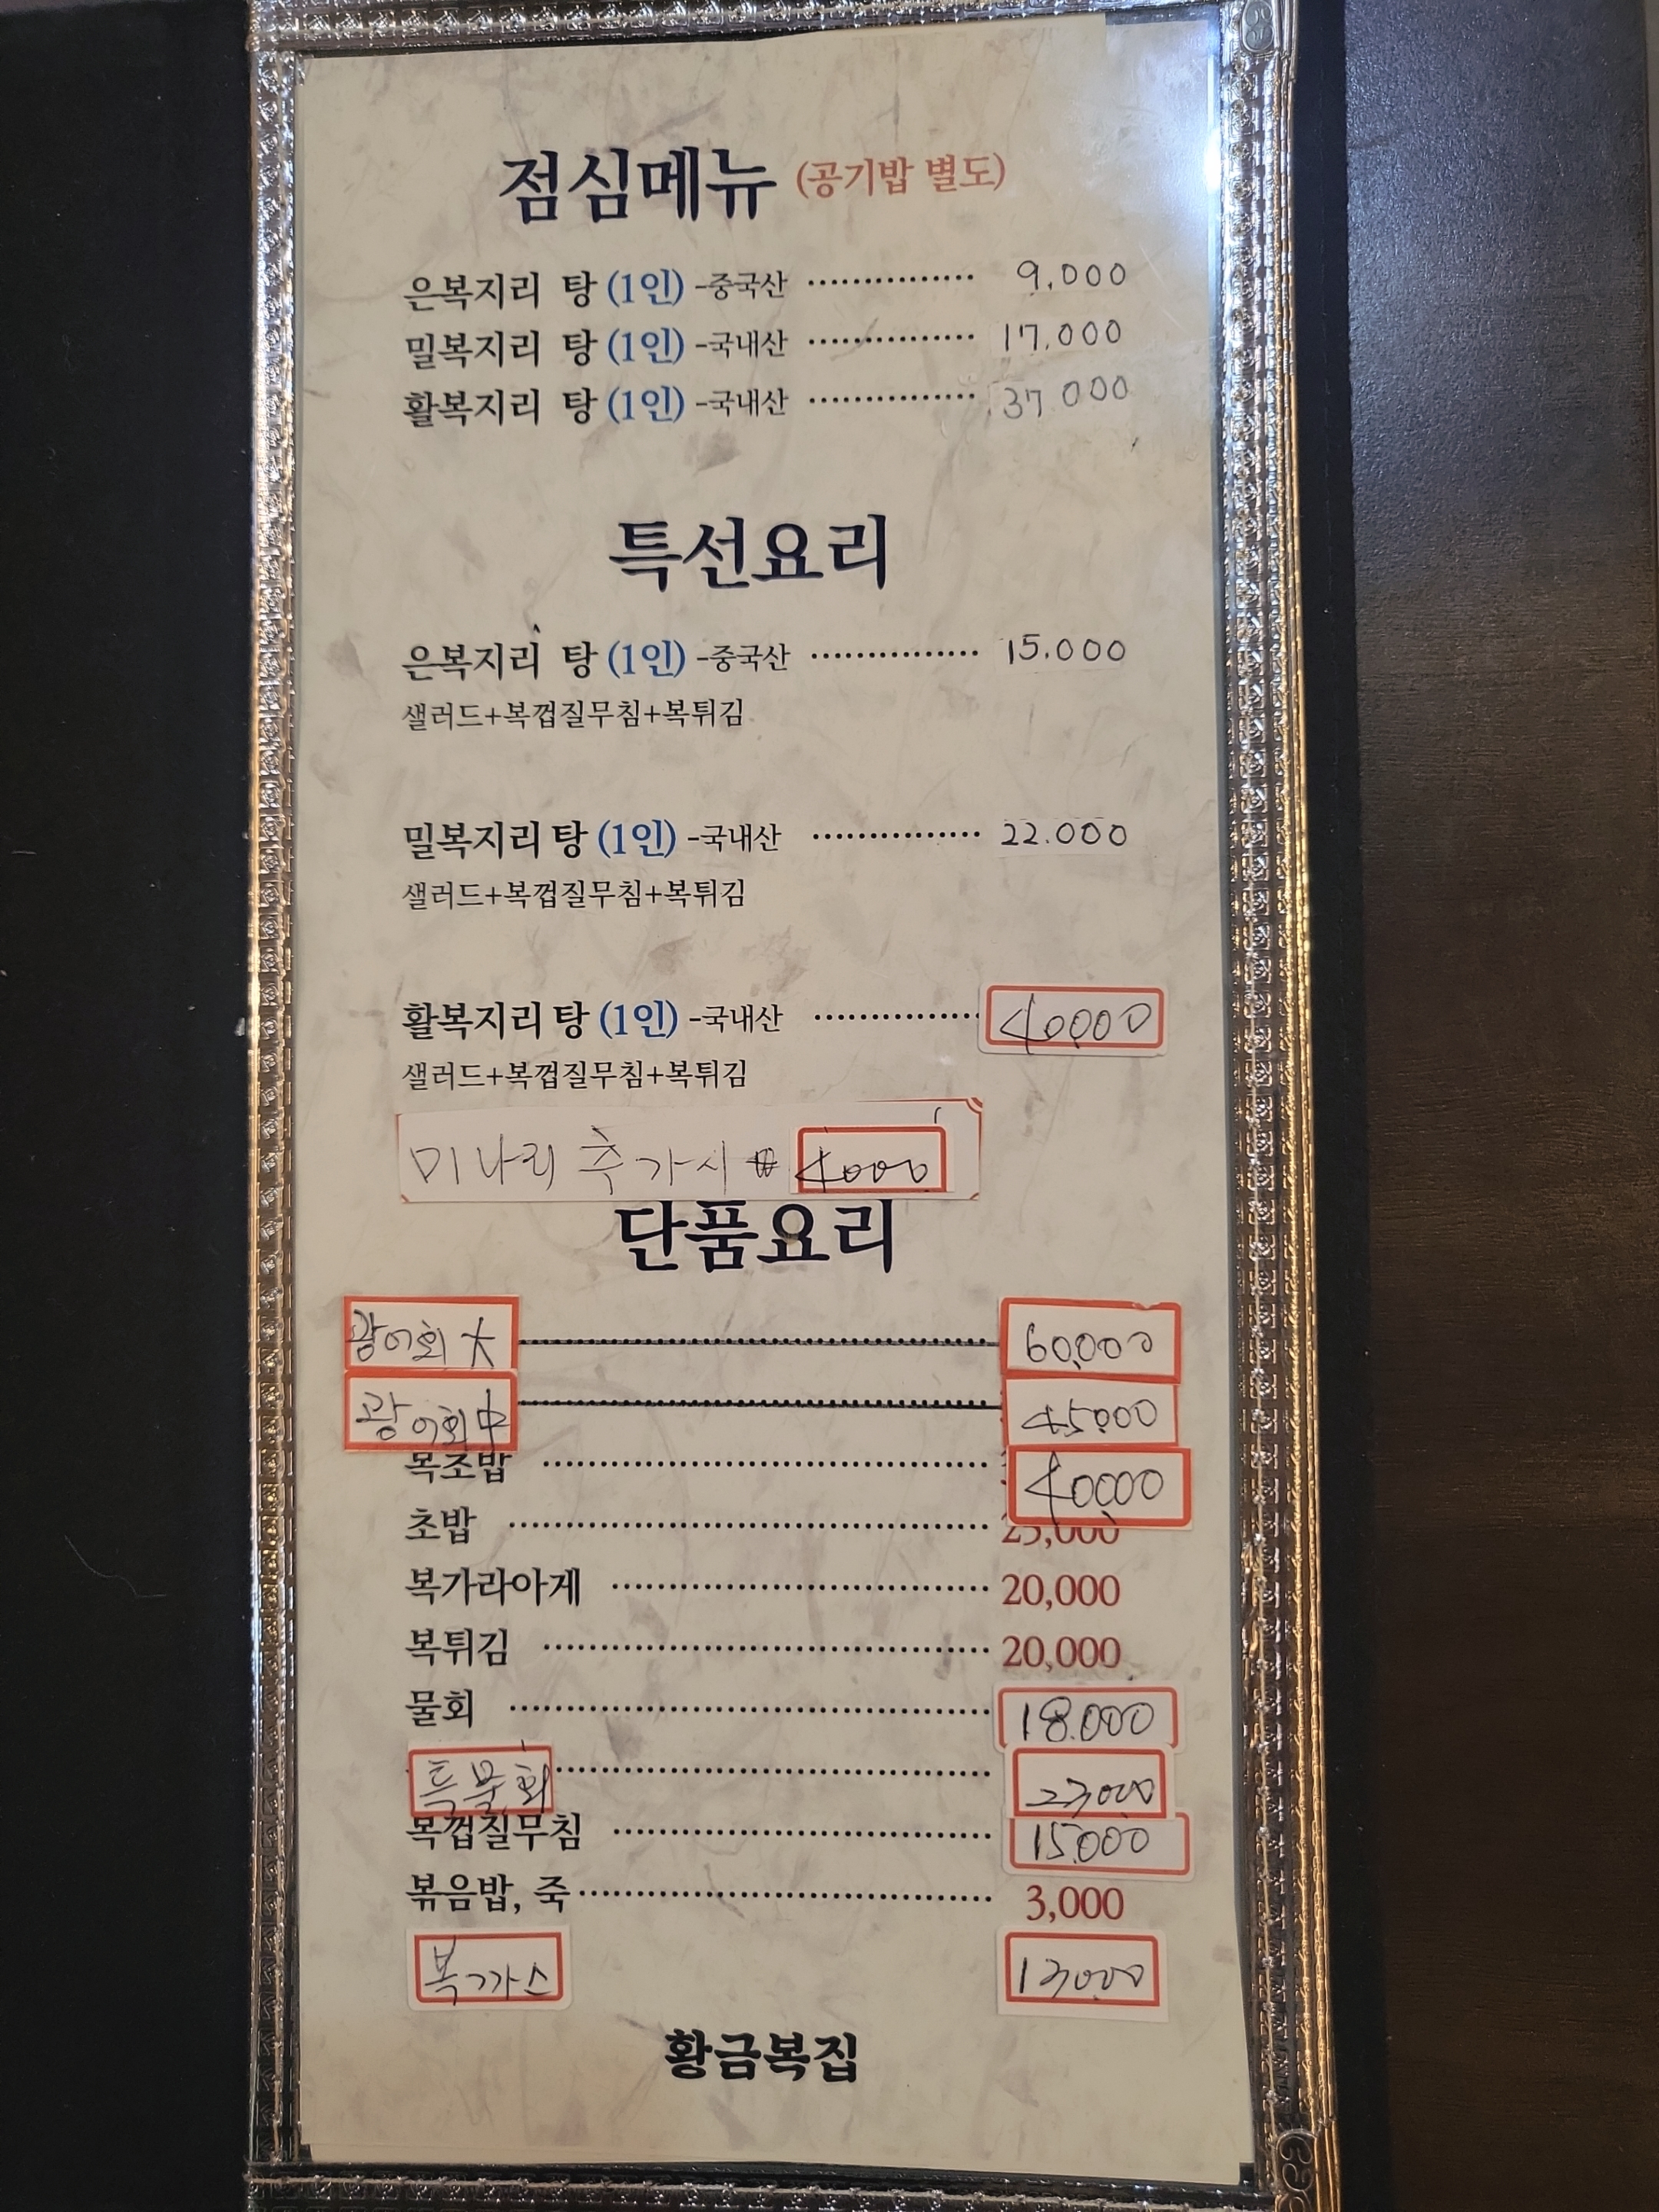 점심메뉴 (공기밥 별도)
은복지리 탕 (1인) -중국산 ··············· 9.000
밀복지리 탕 (1인) -국내산 ··············· 17.000
활복지리 탕 (1인) -국내산 ··············· 37 000
특선요리
은복지리 탕 (1인) -중국산 ··············· 15.000
샐러드+복껍질무침+복튀김
밀복지리 탕 (1인) -국내산 ··············· 22.000
샐러드+복껍질무침+복튀김
활복지리 탕 (1인) -국내산 ··············· 40,000
샐러드+복껍질무침+복튀김
미나리 추가시 ₩ 4000
단품요리
광어회 大 ··············· 60,000
광어회 中 ··············· 45,000
복초밥 ··············· 40,000
초밥 ··············· 25,000
복가라아게 ··············· 20,000
복튀김 ··············· 20,000
물회 ··············· 18.000
특물회 ··············· 23,000
복껍질무침 ··············· 15,000
볶음밥, 죽 ··············· 3,000
복까스 13,000
황금복집